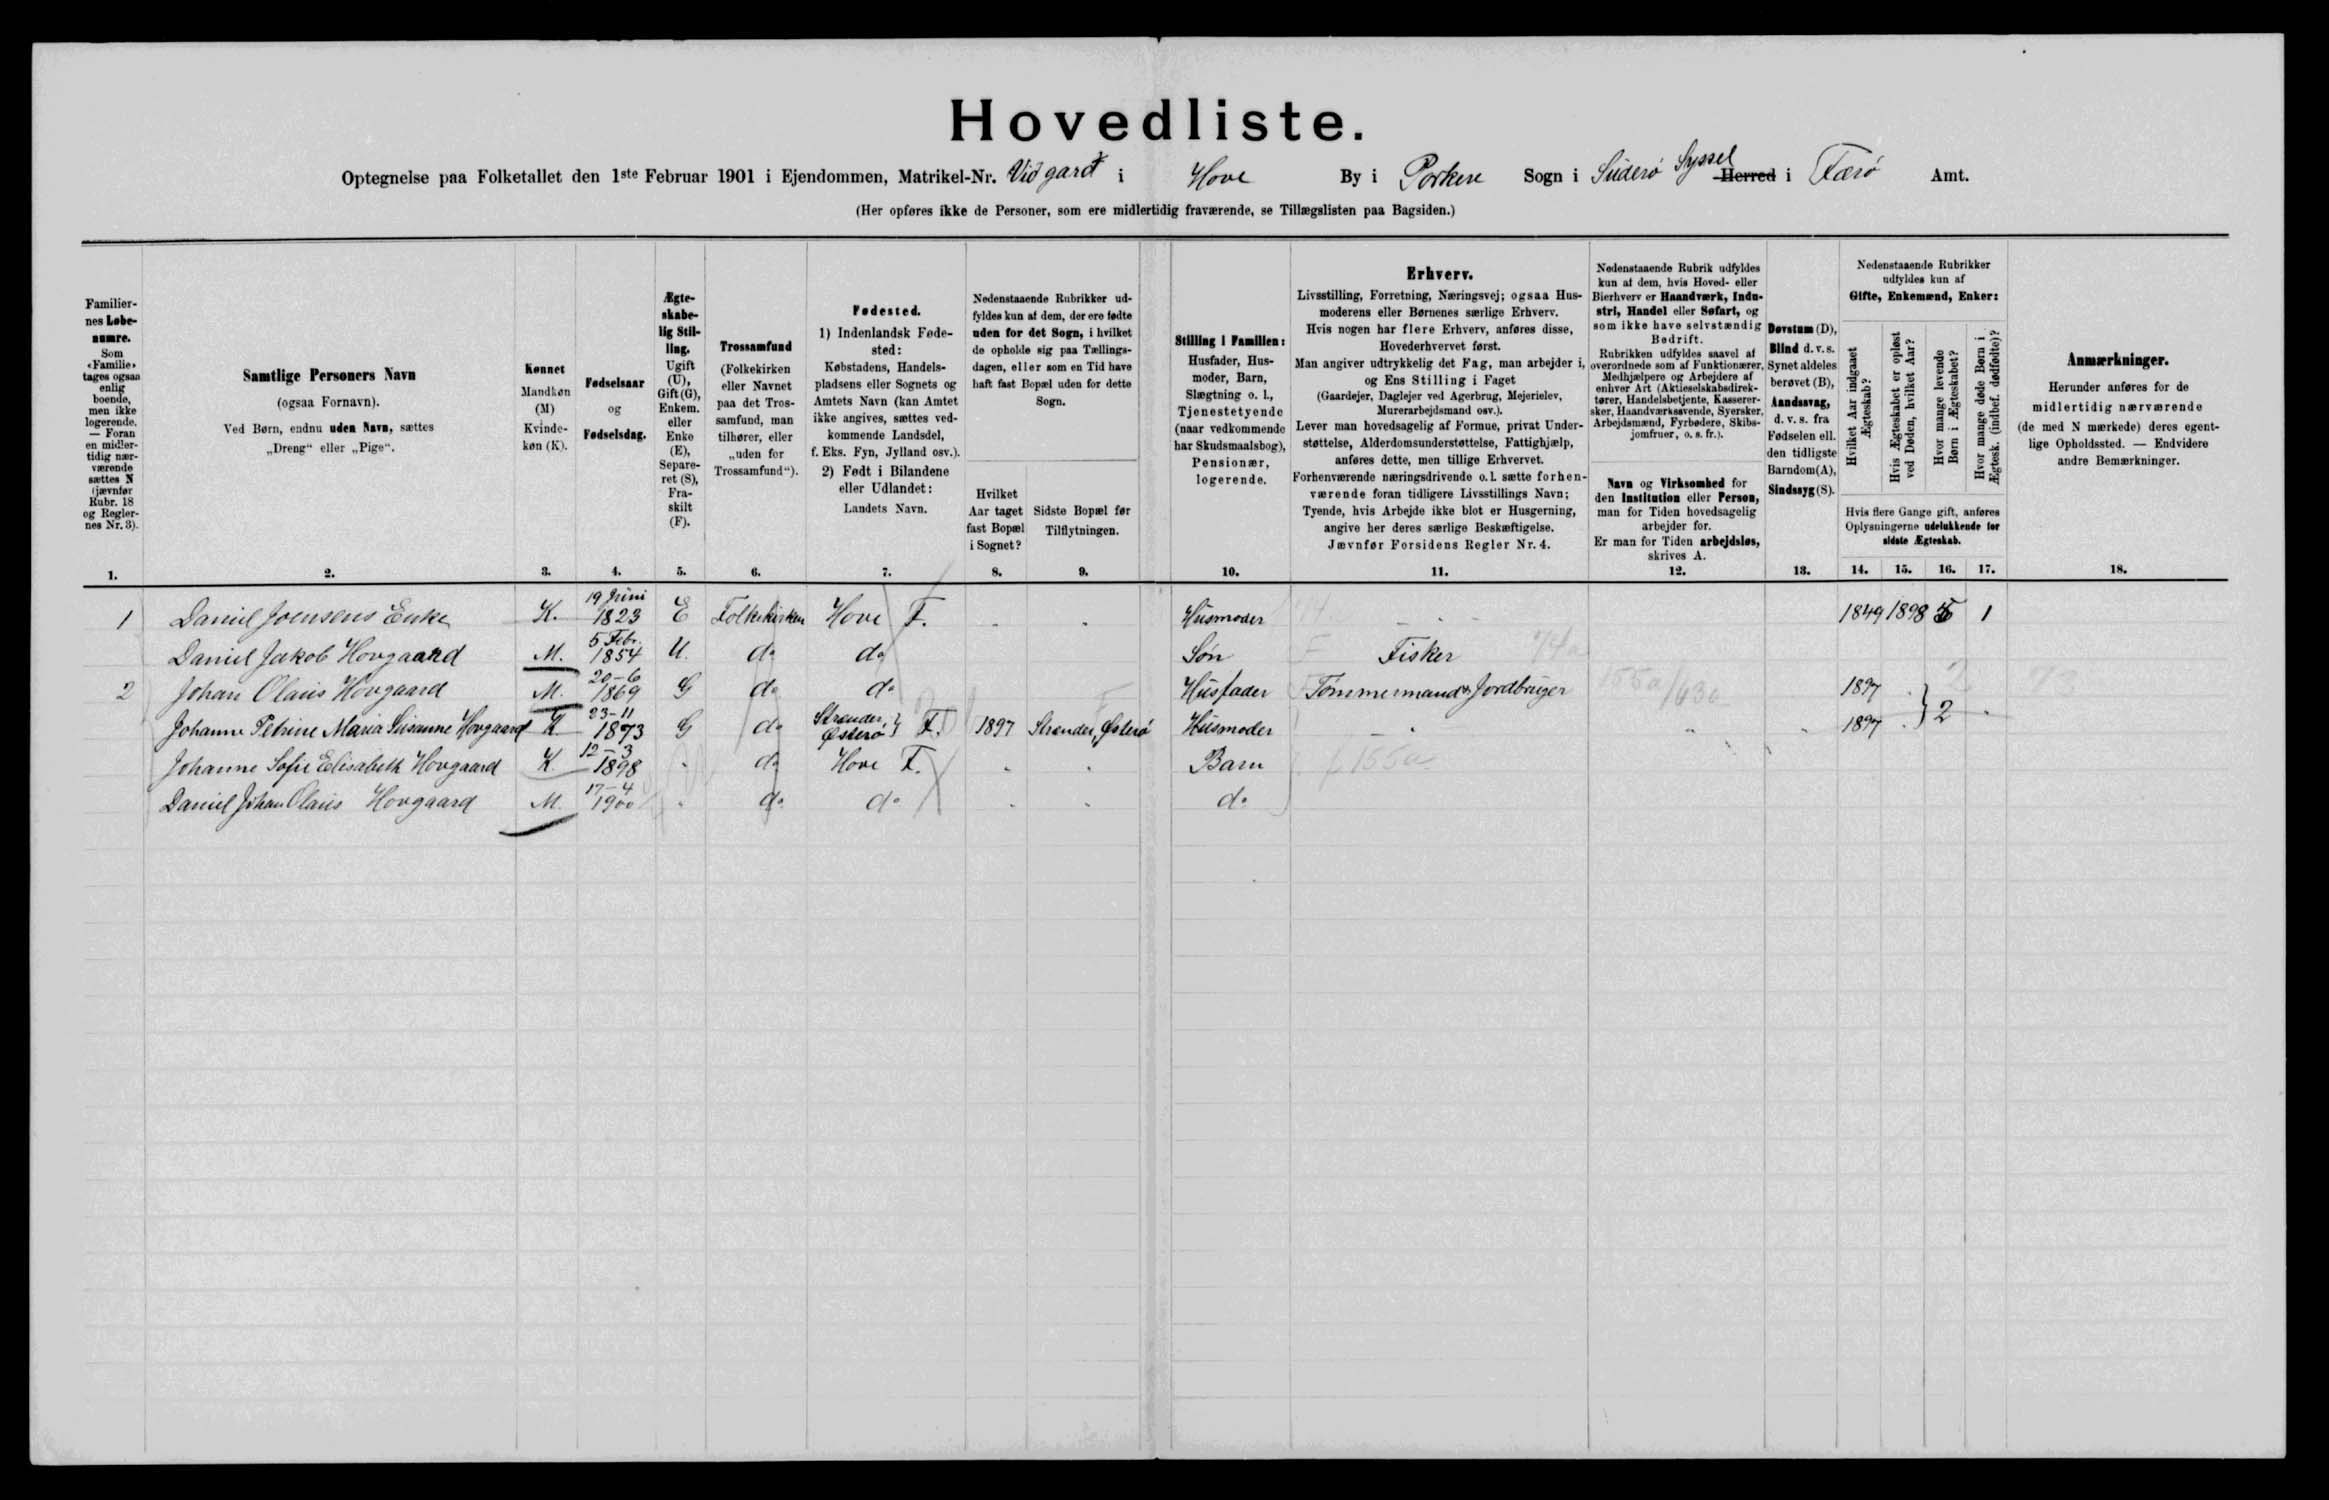 Hovedliste.
Optegnelse paa Folketallet den 1ste Februar 1901 i Ejendommen, Matrikel-Nr. Við gard i Hove By i Porkere Sogn i Suderø Syssel Herred i Færø Amt.
(Her opføres ikke de Personer, som ere midlertidig fraværende, se Tillægslisten paa Bagsiden.)
Familiernes Løbenumre. Som «Familie» tages ogsaa enlig boende, men ikke logerende. — Foran en midlertidig nærværende sættes N (jævnfør Rubr. 18 og Reglernes Nr. 3).
Samtlige Personers Navn
(ogsaa Fornavn).
Ved Børn, endnu uden Navn, sættes
„Dreng“ eller „Pige“.
Kønnet
Mandkøn
(M)
Kvinde-
køn (K).
Fødselsaar
og
Fødselsdag.
Ægte-
skabe-
lig Stil-
ling.
Ugift
(U),
Gift (G),
Enkem.
eller
Enke
(E),
Separe-
ret (S),
Fra-
skilt
(F).
Trossamfund
(Folkekirken
eller Navnet
paa det Tros-
samfund, man
tilhører, eller
„uden for
Trossamfund“).
Fødested.
1) Indenlandsk Føde-
sted:
Købstadens, Handels-
pladsens eller Sognets og
Amtets Navn (kan Amtet
ikke angives, sættes ved-
kommende Landsdel,
f. Eks. Fyn, Jylland osv.).
2) Født i Bilandene
eller Udlandet:
Landets Navn.
Nedenstaaende Rubrikker ud-
fyldes kun af dem, der ere fødte
uden for det Sogn, i hvilket
de opholde sig paa Tællings-
dagen, eller som en Tid have
haft fast Bopæl uden for dette
Sogn.
Hvilket
Aar taget
fast Bopæl
i Sognet?
Sidste Bopæl før
Tilflytningen.
Stilling i Familien:
Husfader, Hus-
moder, Barn,
Slægtning o. l.,
Tjenestetyende
(naar vedkommende
har Skudsmaalsbog),
Pensionær,
logerende.
Erhverv.
Livsstilling, Forretning, Næringsvej; ogsaa Hus-
moderens eller Børnenes særlige Erhverv.
Hvis nogen har flere Erhverv, anføres disse,
Hovederhvervet først.
Man angiver udtrykkelig det Fag, man arbejder i,
og Ens Stilling i Faget
(Gaardejer, Daglejer ved Agerbrug, Mejerielev,
Murerarbejdsmand osv.).
Lever man hovedsagelig af Formue, privat Under-
støttelse, Alderdomsunderstøttelse, Fattighjælp,
anføres dette, men tillige Erhvervet.
Forhenværende næringsdrivende o. l. sætte forhen-
værende foran tidligere Livsstillings Navn;
Tyende, hvis Arbejde ikke blot er Husgerning,
angive her deres særlige Beskæftigelse.
Jævnfør Forsidens Regler Nr. 4.
Nedenstaaende Rubrik udfyldes
kun af dem, hvis Hoved- eller
Bierhverv er Haandværk, Indu-
stri, Handel eller Søfart, og
som ikke have selvstændig
Bedrift.
Rubrikken udfyldes saavel af
overordnede som af Funktionærer,
Medhjælpere og Arbejdere af
enhver Art (Aktieselskabsdirek-
tører, Handelsbetjente, Kasserer-
sker, Haandværkssvende, Syersker,
Arbejdsmænd, Fyrbødere, Skibs-
jomfruer, o. s. fr.).
Navn og Virksomhed for
den Institution eller Person,
man for Tiden hovedsagelig
arbejder for.
Er man for Tiden arbejdsløs,
skrives A.
Døvstum (D),
Blind d. v. s.
Synet aldeles
berøvet (B),
Aandssvag,
d. v. s. fra
Fødselen ell.
den tidligste
Barndom (A),
Sindssyg (S).
Nedenstaaende Rubrikker
udfyldes kun af
Gifte, Enkemænd, Enker:
Hvilket Aar indgaaet Ægteskab?
Hvis Ægteskabet er opløst ved Døden, hvilket Aar?
Hvor mange levende Børn i Ægteskabet?
Hvor mange døde Børn i Ægtesk. (indbef. dødfødte)?
Hvis flere Gange gift, anføres
Oplysningerne udelukkende for
sidste Ægteskab.
Anmærkninger.
Herunder anføres for de
midlertidig nærværende
(de med N mærkede) deres egent-
lige Opholdssted. — Endvidere
andre Bemærkninger.
1. 2. 3. 4. 5. 6. 7. 8. 9. 10. 11. 12. 13. 14. 15. 16. 17. 18.
1 Daniel Joensens Enke K. 19 Juni 1823 E Folkekirken Hove F. Husmoder 1849 1898 5 1
Daniel Jakob Hovgaard M. 5 Febr. 1854 U. do do Søn Fisker 74
2 Johan Olaus Hovgaard M. 20-6 1869 G do do Husfader Tømmermand & Jordbruger 155a/630 1897
Johanne Petrine Maria Susanne Hovgaard K 23-11 1873 G do Strænder, Østerø } F. 1897 Strænder, Østerø Husmoder 1897 } 2
Johanne Sofie Elisabeth Hovgaard K. 12-3 1898 do Hove F. Barn f 155a
Daniel Johan Olaus Hovgaard M. 17-4 1900 do do do